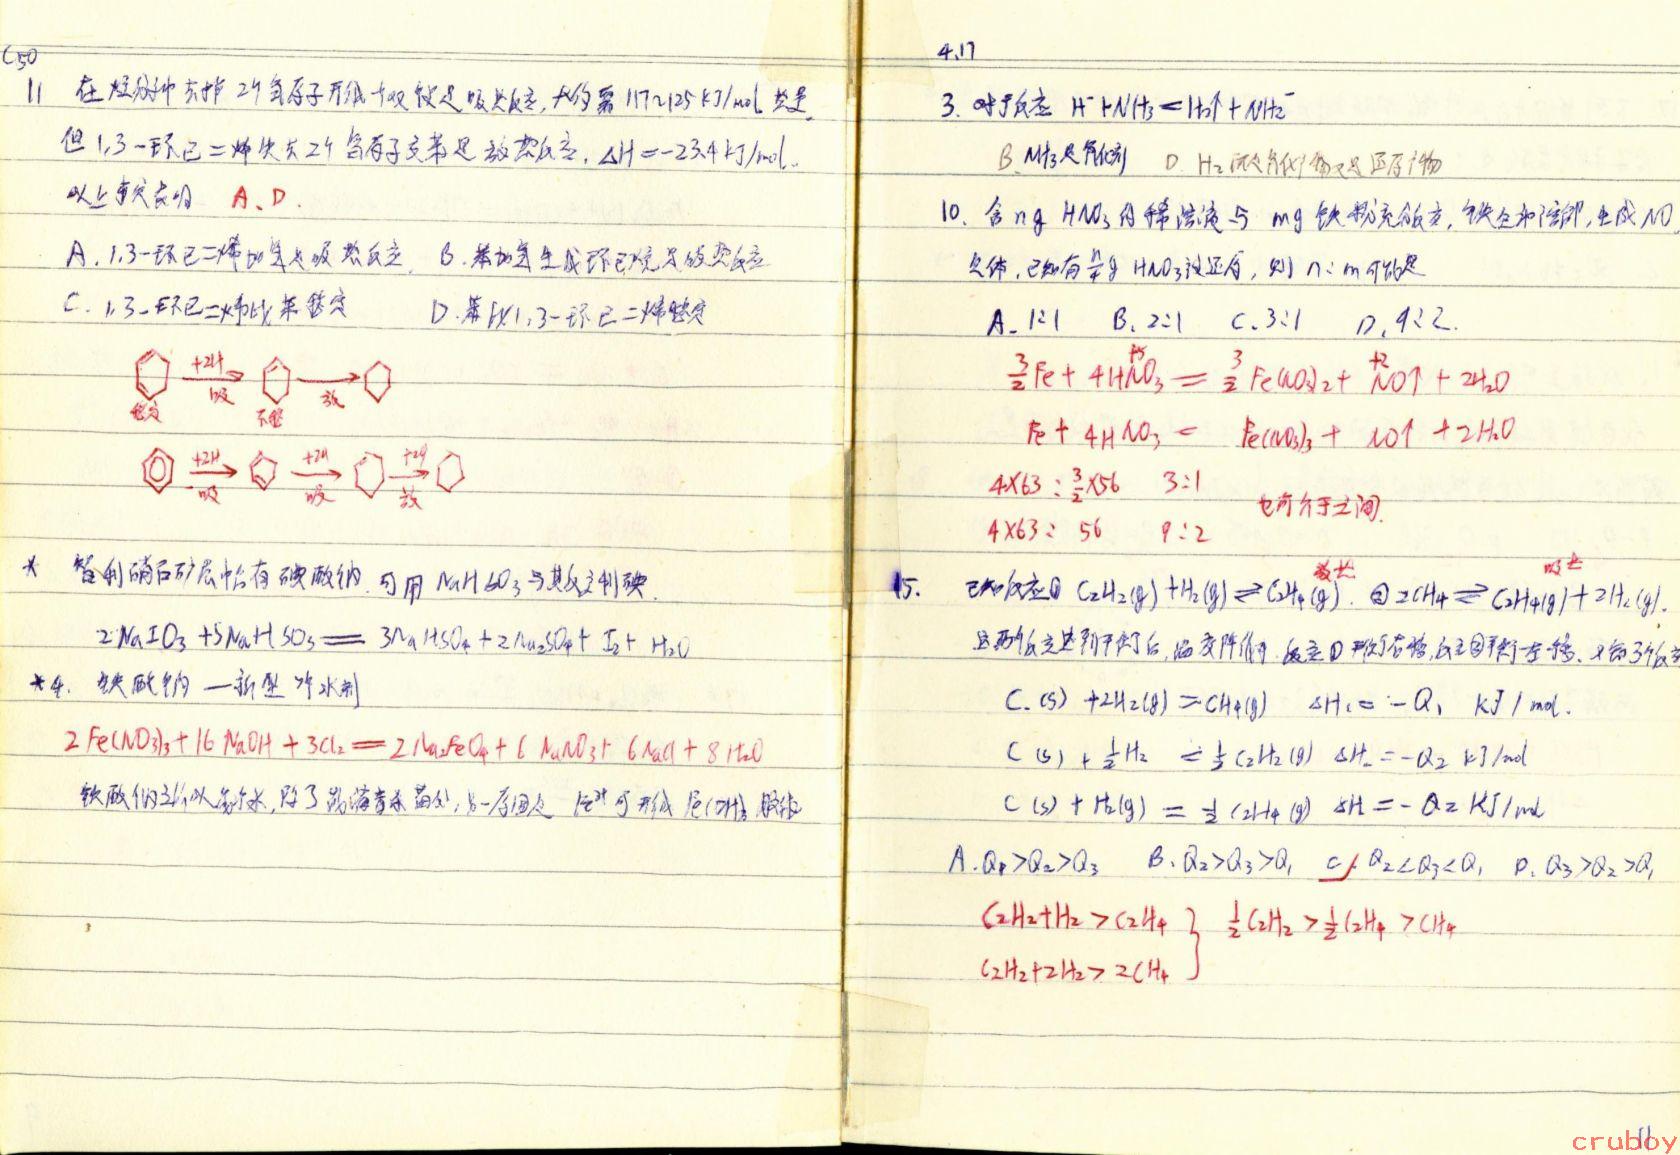 C50
11 在烃分子中去掉2个氢原子形成一个双键是吸热反应,大约需117~125 kJ/mol 热量.
但1,3-环己二烯失去2个氢原子变苯是放热反应,△H=-23.4 kJ/mol.
以上事实表明 A、D.
A. 1,3-环己二烯加氢是吸热反应 B. 苯加氢生成环己烷是吸热反应
C. 1,3-环己二烯比苯稳定 D. 苯比1,3-环己二烯稳定
+2H
吸 放
稳定 不稳
+2H +2H +2H
吸 吸 放
* 智利硝石矿层中含有碘酸钠,可用NaHSO3与其反应制碘.
2NaIO3 +5NaHSO3 = 3NaHSO4+2Na2SO4+ I2+ H2O
*4. 铁酸钠 一新型净水剂
2Fe(NO3)3+16NaOH+3Cl2=2Na2FeO4+6NaNO3+6NaCl+8H2O
铁酸钠之所以能净水,除了能消毒杀菌外,另一原因是 Fe3+可形成Fe(OH)3胶体
4.17
3. 对于反应 H-+NH3=H2↑+NH2-
B. NH3是氧化剂 D. H2既是氧化产物又是还原产物
10. 含n g HNO3的稀溶液与 m g 铁粉充分反应,铁全部溶解,生成NO
气体,已知有n/4 g HNO3被还原,则n:m可能是
A. 1:1 B. 2:1 C. 3:1 D. 9:2.
+5 +2
3/2Fe+4HNO3=3/2Fe(NO3)2+NO↑+2H2O
Fe+4HNO3= Fe(NO3)3+ NO↑ +2H2O
4×63:3/2×56 3:1
也可介于之间.
4×63: 56 9:2
放热 吸热
15. 已知反应① C2H2(g)+H2(g)⇌C2H4(g). ②2CH4⇌C2H4(g)+2H2(g).
这两个反应达到平衡后,温度降低时,反应①平衡右移,反应②平衡左移.
C(s) +2H2(g)=CH4(g) △H1=-Q1 KJ/mol.
C(s)+1/2H2 =1/2C2H2(g) △H2=-Q2 kJ/mol
C(s)+H2(g)=1/2C2H4(g) △H=-Q2 KJ/mol
A. Q1>Q2>Q3 B. Q2>Q3>Q1 C. Q2<Q3<Q1 D. Q3>Q2>Q1
C2H2+H2>C2H4 } 1/2C2H2>1/2C2H4>CH4
C2H2+2H2>2CH4
11
cruboy